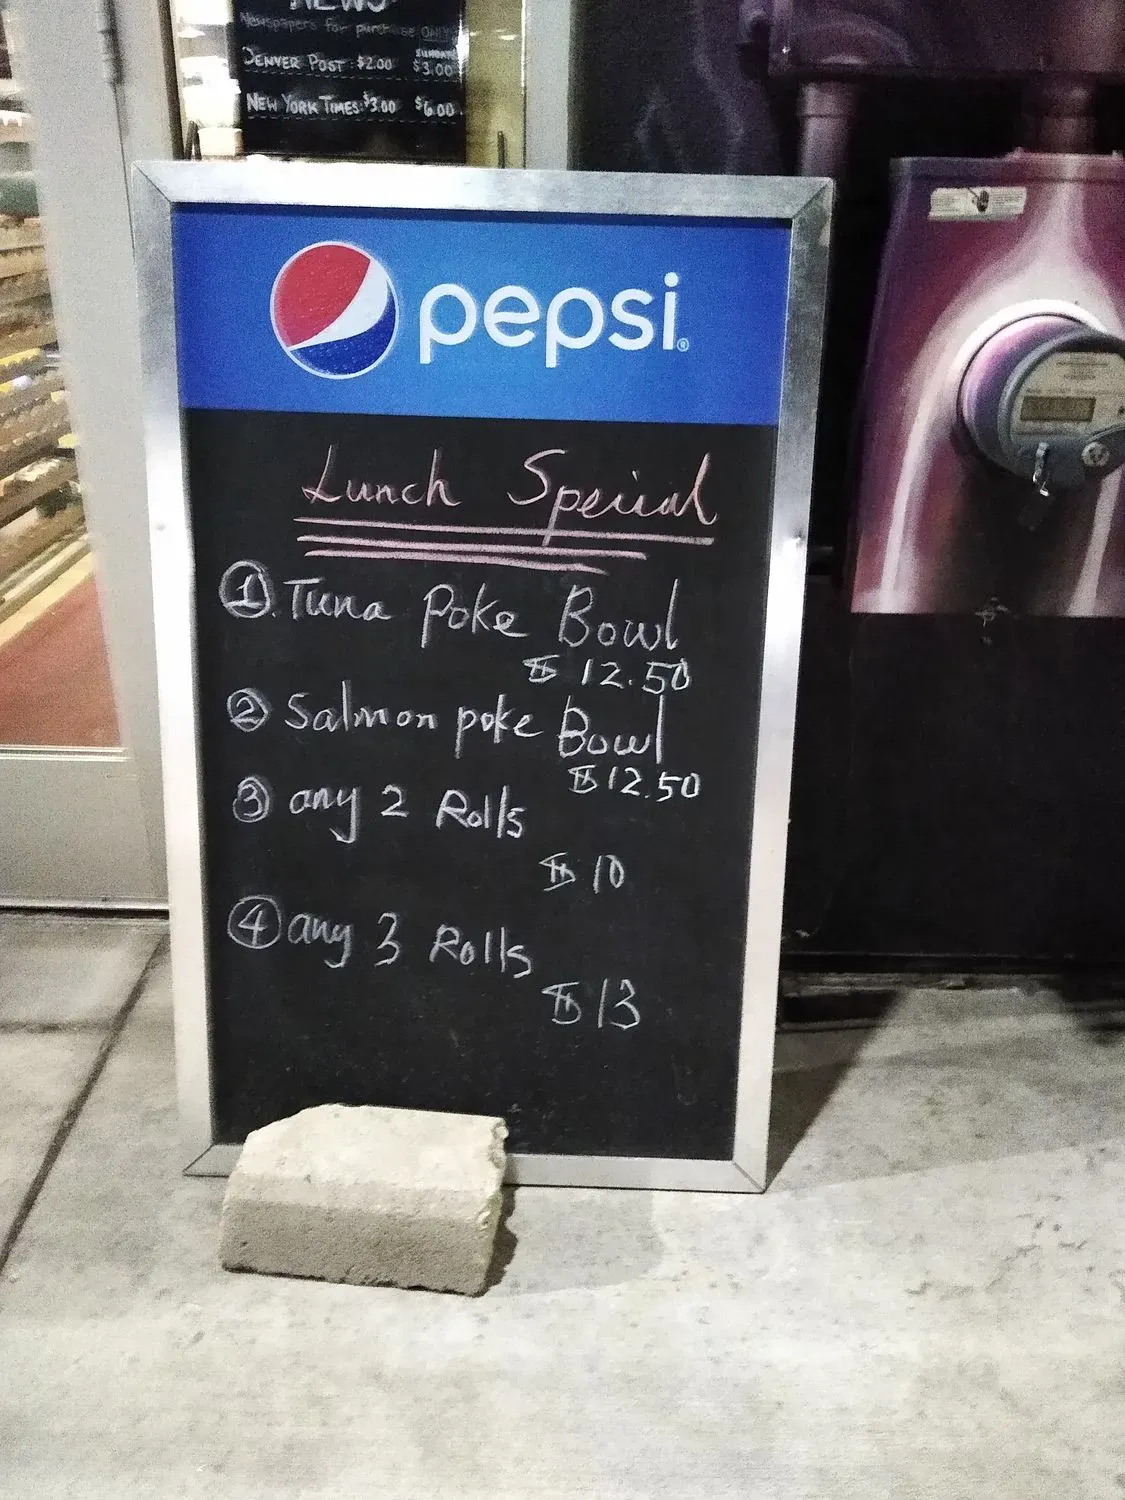 NEWS
Newspapers for purchase ONLY
SUNDAY
DENVER POST $2.00 $3.00
NEW YORK TIMES: $3.00 $6.00
pepsi®
Lunch Special
① Tuna Poke Bowl
$12.50
② Salmon poke Bowl
$12.50
③ any 2 Rolls
$10
④ any 3 Rolls
$13